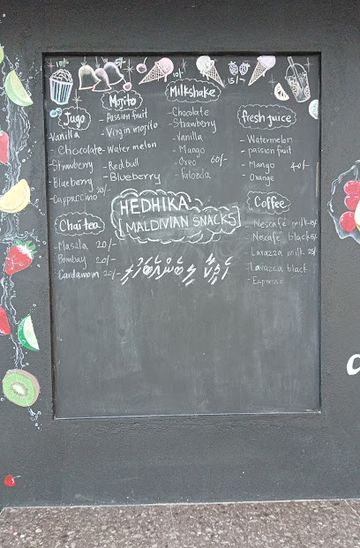 10/-
5/-
10/-
15/-
Jugo
Vanilla
- Chocolate
Strawberry
Blueberry
Cappuccino
30/-
Mojito
- Passion fruit
- Virgin mojito
- Water melon
- Redbull
- Blueberry
Milkshake
- Chocolate
- Strawberry
- Vanilla
- Mango
- Oreo 60/-
Fresh juice
- Watermelon
- passion fruit
- Mango 40/-
- Orange
Chai tea
- Masala 20/-
Bombay 20/-
Cardamom 20/-
HEDHIKA
MALDIVIAN SNACKS
Coffee
- Nescafé milk
- Nescafe black
- Lavazza milk
- Lavazza black
- Espresso